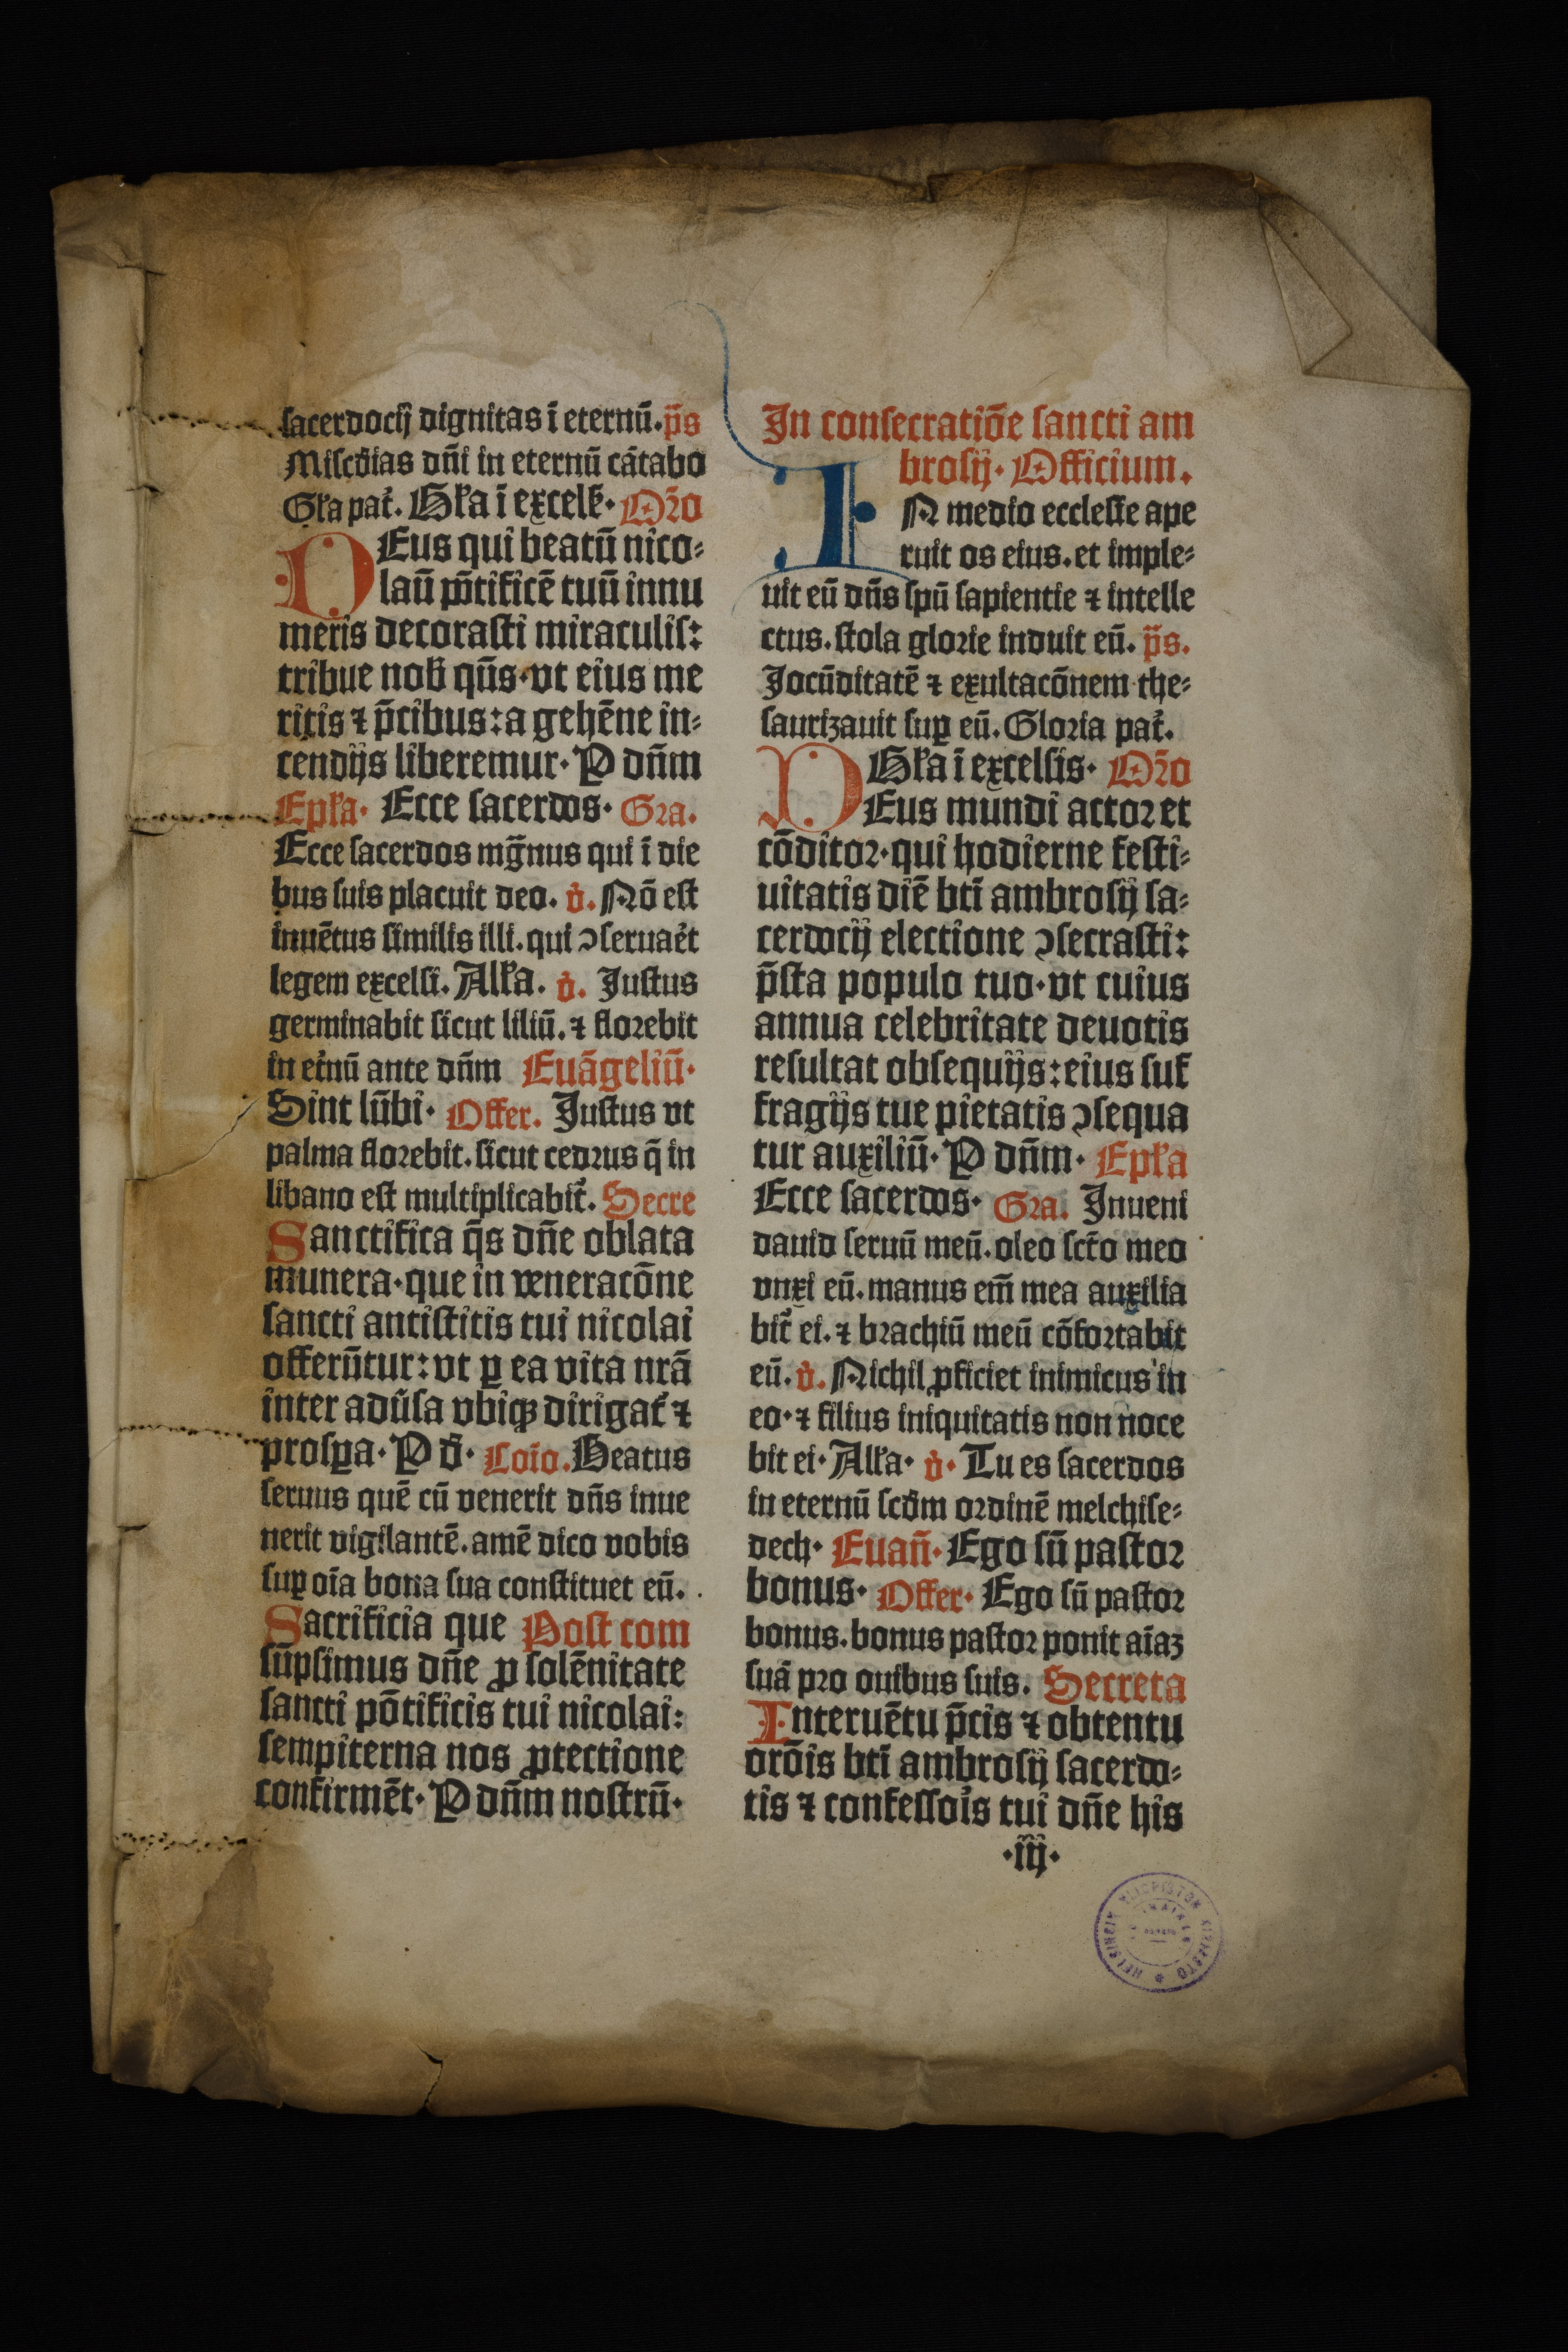 sacerdocij dignitas ī eternū. p̄s
Misc̄dias dn̄i in eternū cātabo
Gl̄a pat̉. Gl̄a ī excels̄. Or̄o
DEus qui beatū nico⸗
laū pn̄tificē tuū innu
meris decorasti miraculis:
tribue nob̄ qn̄s. vt eius me
ritis ⁊ p̄cibus: a gehēne in⸗
cendijs liberemur. P dn̄m
Epl̄a. Ecce sacerdos. Gra.
Ecce sacerdos mḡnus qui ī die
bus suis placuit deo. v̉. Nō est
inuētus similis illi. qui ↄseruaēt
legem excelsi. All̄a. v̉. Justus
germinabit sicut liliū. ⁊ florebit
in et̉nū ante dn̄m Euāgeliū.
Sint lūbi. Offer. Justus vt
palma florebit. sicut cedrus q̄ in
libano est multiplicabit̉. Secre
Sanctifica q̄s dn̄e oblata
munera. que in veneracōne
sancti antistitis tui nicolai
offerūtur: vt ꝑ ea vita nrā
inter adūsa vbiqꝫ dirigat̉ ⁊
prosꝑa. P d̄. Cōio. Beatus
seruus quē cū venerit dn̄s inue
nerit vigilantē. amē dico vobis
suꝑ oīa bona sua constituet eū.
Sacrificia que Post com
sūpsimus dn̄e ꝓ solēnitate
sancti pōtificis tui nicolai:
sempiterna nos ꝓtectione
confirmēt. P dn̄m nostrū.
In consecratiōe sancti am
brosij. Officium.
IN medio ecclesie ape
ruit os eius. et imple⸗
uit eū dn̄s spū sapientie ⁊ intelle
ctus. stola glorie induit eū. p̄s.
Jocūditatē ⁊ exultacōnem the⸗
saurizauit suꝑ eū. Gloria pat̉.
Gl̄a ī excelsis. Or̄o
DEus mundi actor et
cōditor. qui hodierne festi⸗
uitatis diē btī ambrosij sa⸗
cerdocij electione ↄsecrasti:
p̄sta populo tuo. vt cuius
annua celebritate deuotis
resultat obsequijs: eius suf
fragijs tue pietatis ↄsequa
tur auxiliū. P dn̄m. Epl̄a
Ecce sacerdos. Gra. Inueni
dauid seruū meū. oleo sct̄o meo
vnxi eū. manus em̄ mea auxilia
bit̉ ei. ⁊ brachiū meū cōfortabit
eū. v̉. Nichil ꝓficiet inimicus in
eo. ⁊ filius iniquitatis non noce
bit ei. All̄a. v̉. Tu es sacerdos
in eternū scd̄m ordinē melchise⸗
dech. Euan̄. Ego sū pastor
bonus. Offer. Ego sū pastor
bonus. bonus pastor ponit aīaꝫ
suā pro ouibus suis. Secreta
Interuētu p̄cis ⁊ obtentu
orōis btī ambrosij sacerdo⸗
tis ⁊ confessỏis tui dn̄e his
.iij.
HELSINGIN YLIOPISTON KIRJASTO